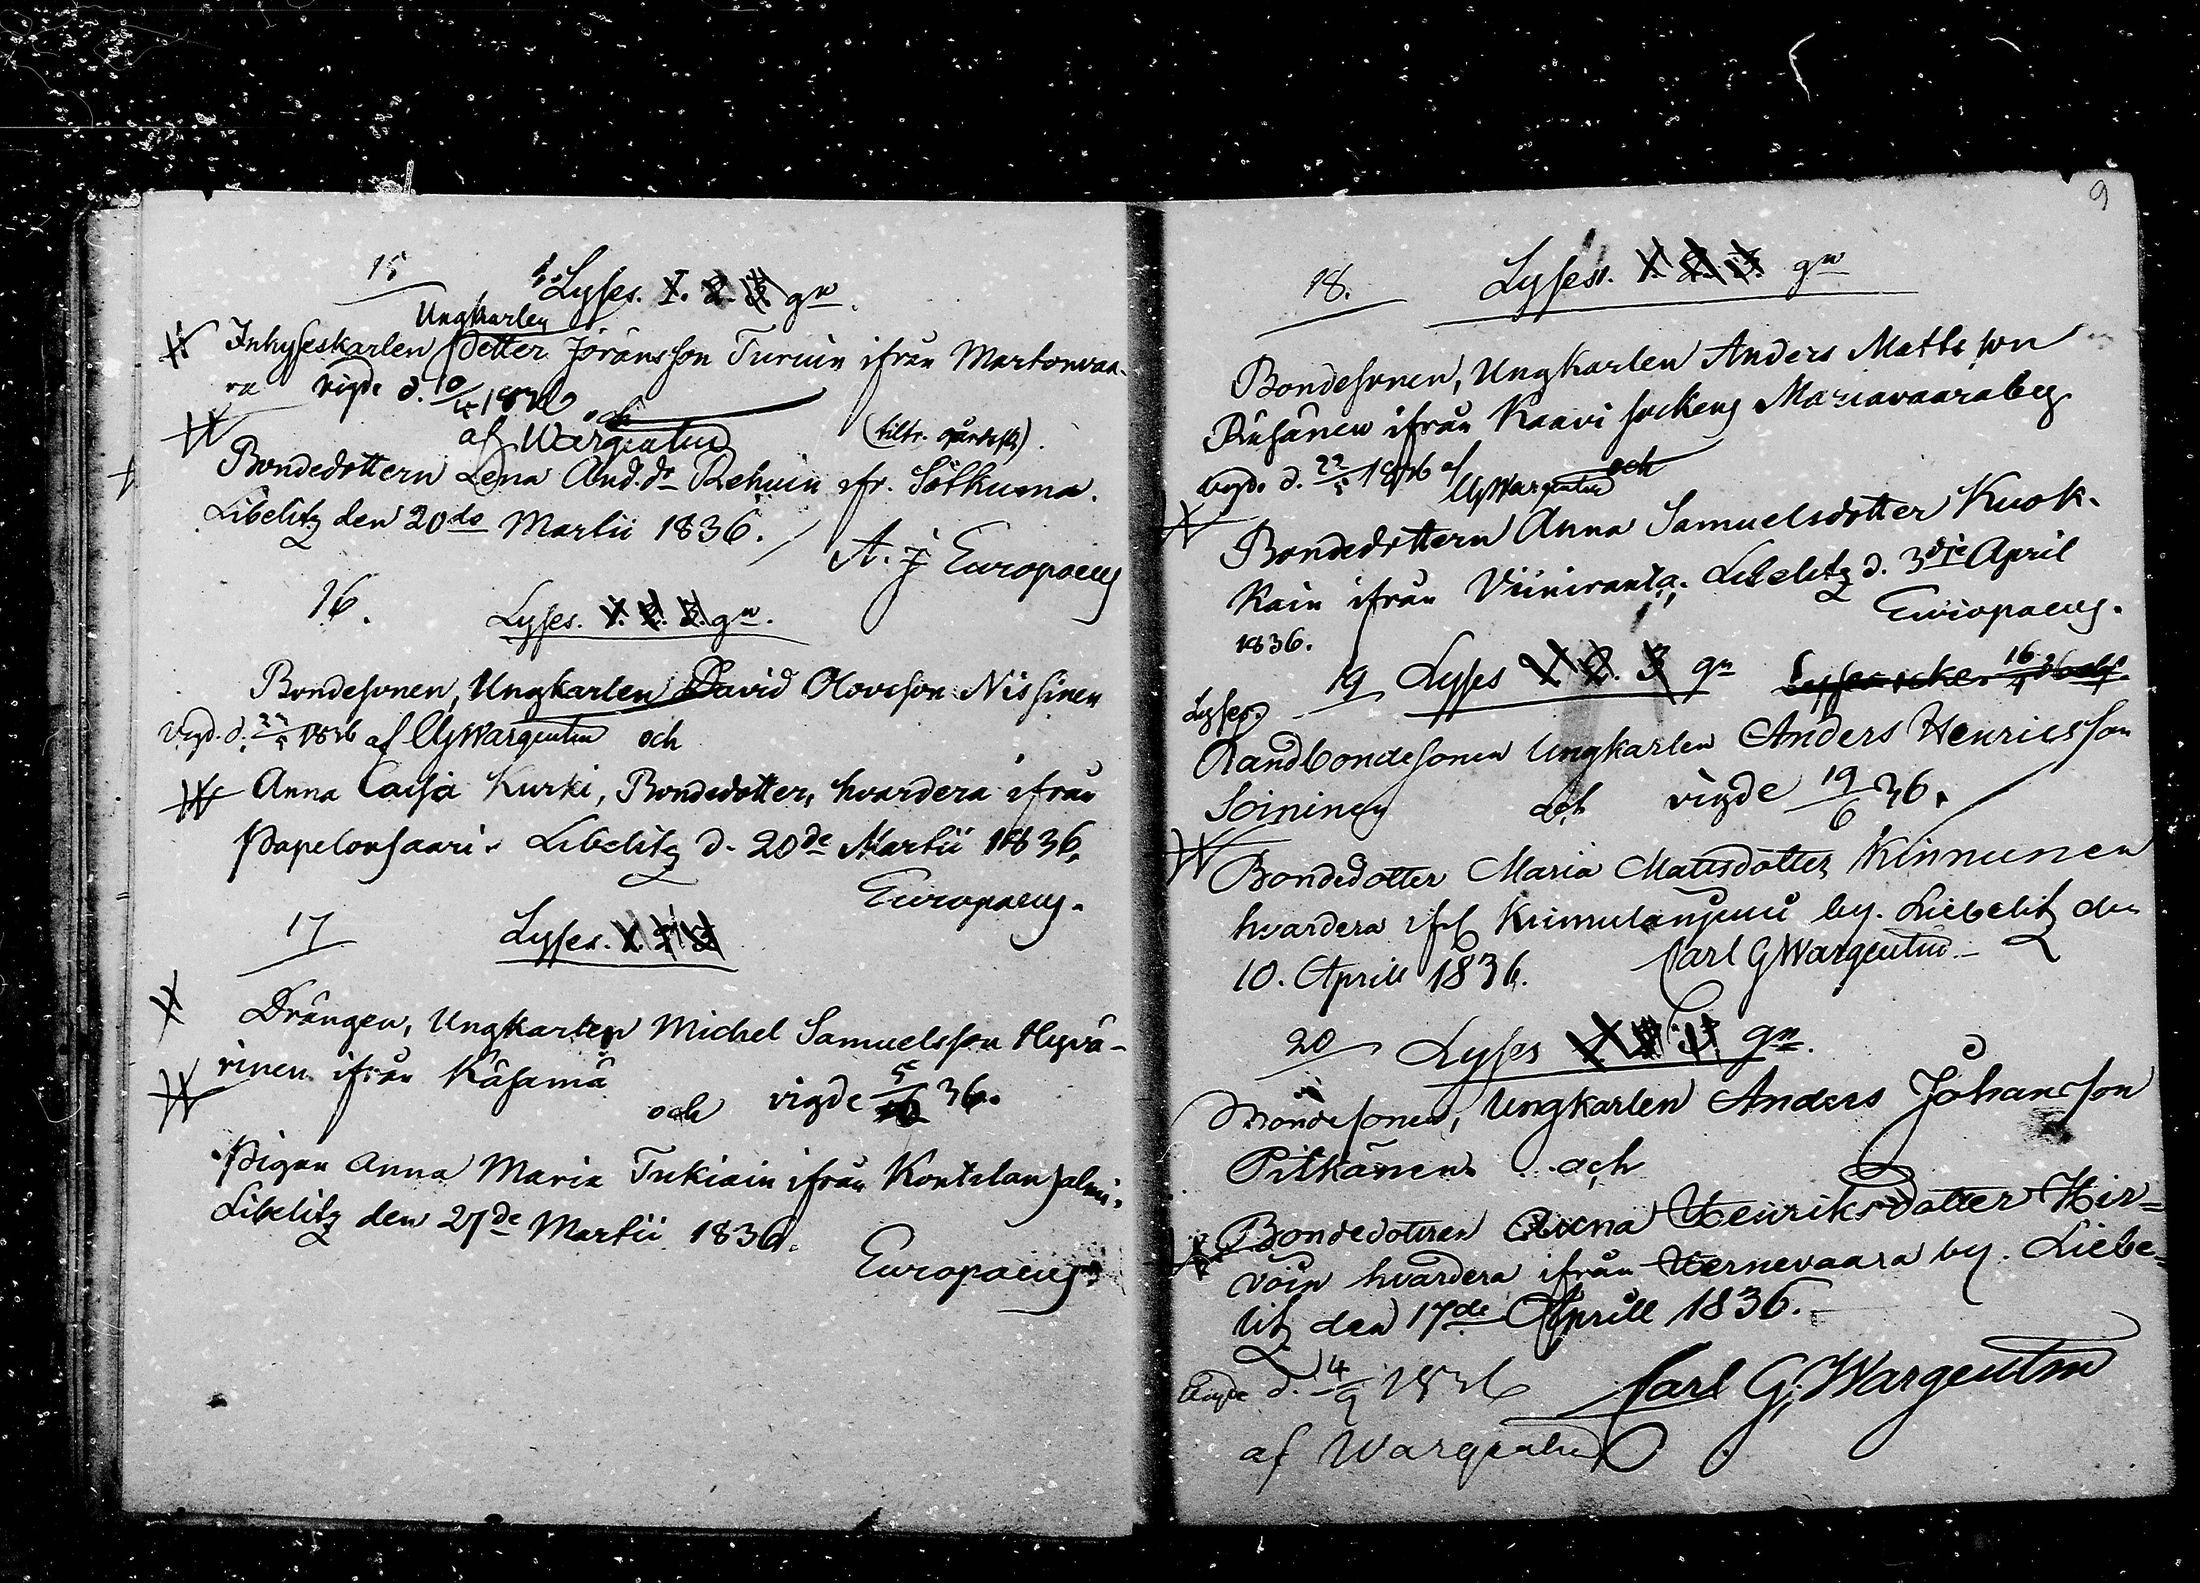 15
Lyses. 1. 2. 3. gn.
Ungkarlen
Inhyseskarlen Petter Jöransson Turuin ifrån Martonvaa-
ra vigde d. 10/4 1836 och
af Wargentin (tiltr. gårdssk)
Bondedottern Lena And.dr Rehuin ifr. Sotkuma.
Libelitz den 20de Martii 1836.
A. J Europaeus
16.
Lyses. 1. 2. 3. gn.
Bondesonen, Ungkarlen David Olovsson Nissinen
Vigd. d. 22/5 1836 af CGWargentin och
Anna Caisa Kurki, Bondedotter, hvardera ifrån
Papelonsaari. Libelitz d. 20de Martii 1836.
Europaeus.
17
Lyses. 1. 2. 3
Drängen, Ungkarlen Michel Samuelsson Hyvä-
rinen ifrån Käsämä
och vigde 5/6 36.
Pigan Anna Maria Tukiain ifrån Kontelansalmi.
Libelitz den 27de Martii 1836.
Europaeus.
9
18.
Lyses. 1. 2. 3. gn
Bondesonen, Ungkarlen Anders Matts son
Räsänen ifrån Kaavi sockens Mariavaara by
vigde d. 22/5 1836 af CGWargentin och
Bondedottern Anna Samuelsdotter Kuok-
kain ifrån Viiniranta. Libelitz d. 3dje April
1836. Europaeus.
19 Lyses 1. 2. 3 gn Lyses icke. 16/4 36
Lyses.
Landbondesonen Ungkarlen Anders Henricsson
Soininen och vigde 19/6 36.
Bondedotter Maria Matsdotter Kinnunen
hvardera ifrå by. Liebelitz den
10. Aprill 1836. Carl GWargentin
20 Lyses 1 2 3 gn.
Bondesonen, Ungkarlen Anders Johansson
Pitkänen och
Bondedottren Anna Henriksdotter Hir=
voin hvardera ifrån Hernevaara by. Liebe=
litz den 17de Aprill 1836.
Vigde d. 4/9 1836 Carl G; Wargentin
af Wargentin